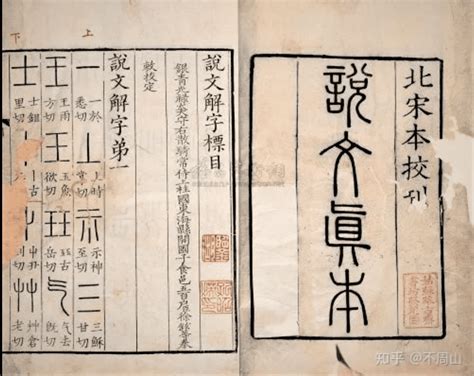 北宋本校刊
說文眞本
說文解字標目
銀青光祿大夫守右散騎常侍上柱國東海縣開國子食邑五百戶臣徐鉉等奉
敕校定
說文解字第一
一 一於悉切 丄 上時掌切 示 示神至切 三 三穌甘切
王 王雨方切 玉 玉魚欲切 玨 玨古岳切 气 气去既切
士 士鉏里切 丨 丨古切 屮 屮丑列切 艸 艸倉老切
上
下
知乎 @不周山